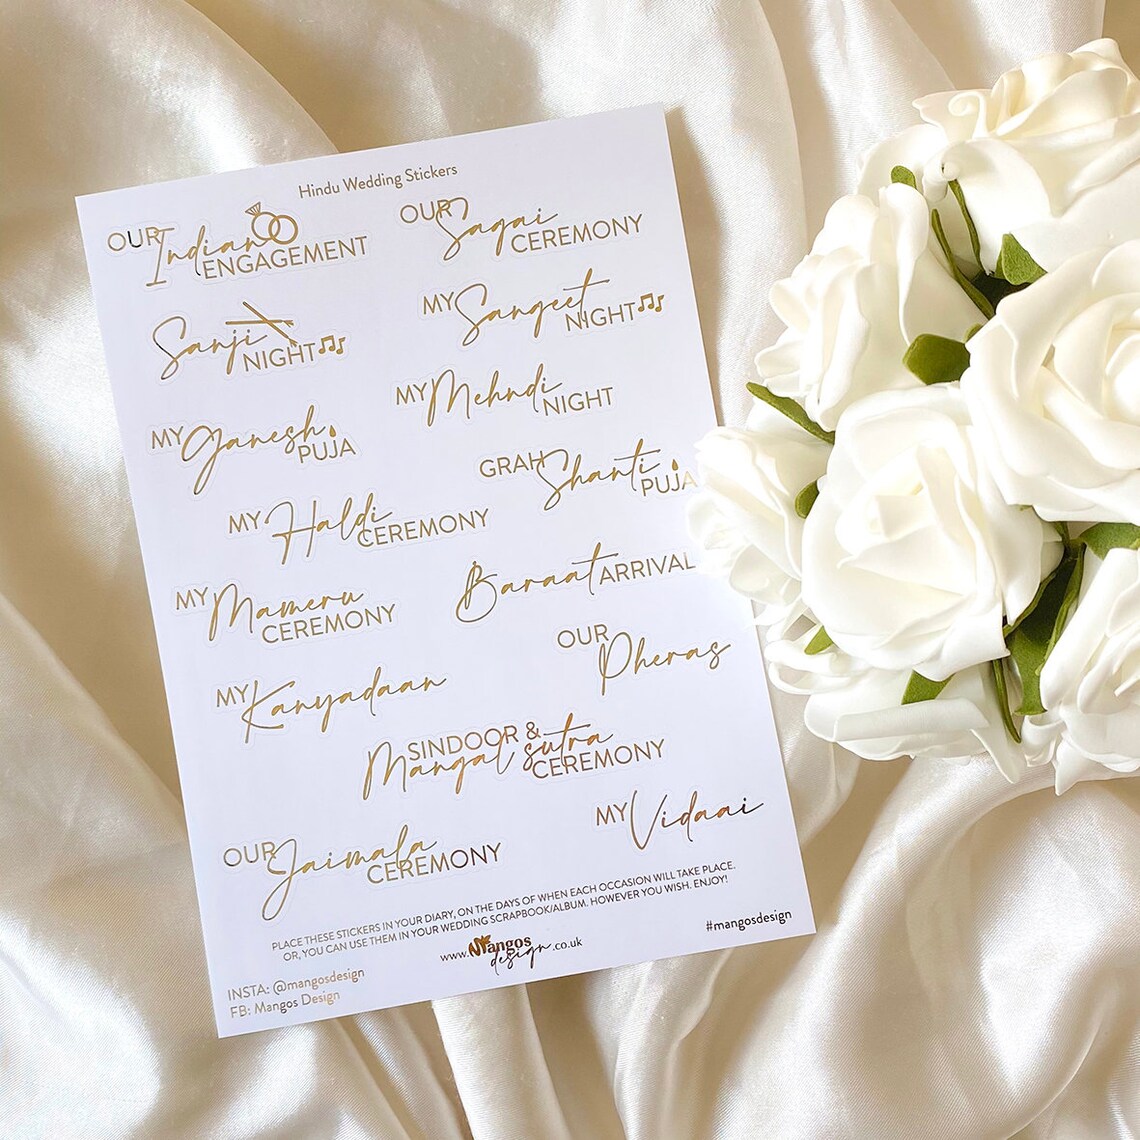 Hindu Wedding Stickers
OUR Indian ENGAGEMENT
OUR Sagai CEREMONY
Sanji NIGHT
MY Sangeet NIGHT
MY Mehndi NIGHT
MY Ganesh PUJA
GRAH Shanti PUJA
MY Haldi CEREMONY
Baraat ARRIVAL
MY Mameru CEREMONY
OUR Pheras
MY Kanyadaan
SINDOOR & Mangal sutra CEREMONY
MY Vidaai
OUR Jaimala CEREMONY
PLACE THESE STICKERS IN YOUR DIARY, ON THE DAYS OF WHEN EACH OCCASION WILL TAKE PLACE.
OR, YOU CAN USE THEM IN YOUR WEDDING SCRAPBOOK/ALBUM. HOWEVER YOU WISH. ENJOY!
www.Mangosdesign.co.uk
#mangosdesign
INSTA: @mangosdesign
FB: Mangos Design